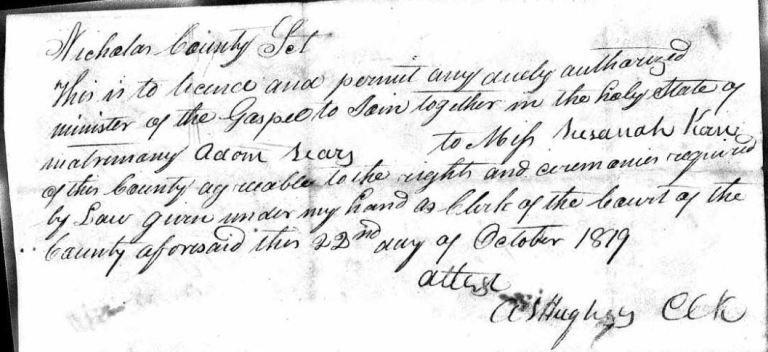 Nicholas County Sct
This is to licence and permit any duely authorized
minister of the Gospel to Join together in the holy State of
matrimony Adam Sears to Miss Susanah
of this County agreeable to the rights and ceremonies required
by Law given under my hand as Clerk of the Court of the
County aforesaid this 22nd day of October 1819
attest
Clk